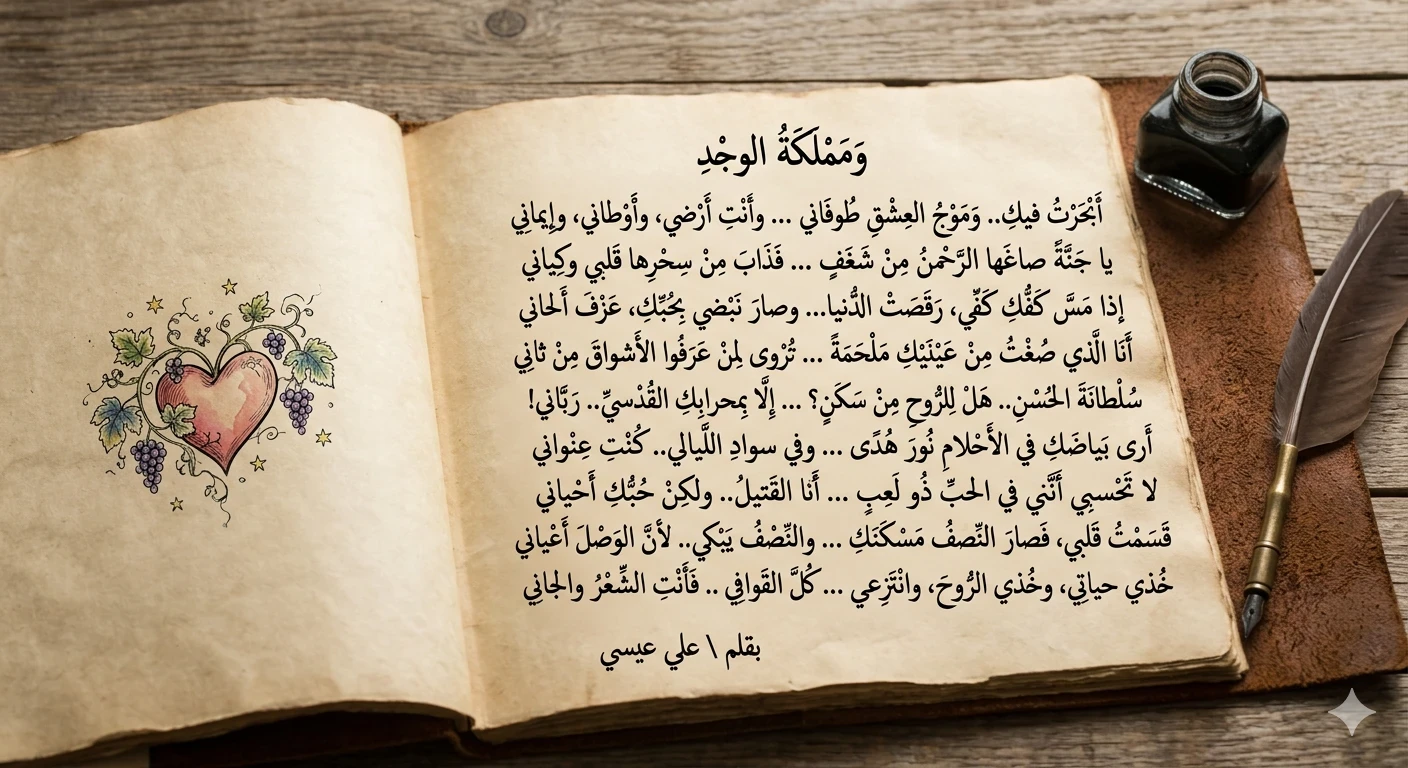 وَمَمْلَكَةُ الوجْدِ
أَبْحَرْتُ فيكِ.. وَمَوْجُ العِشْقِ طُوفَاني ... وأَنْتِ أَرْضي، وأَوْطاني، وإِيمانِي
يا جَنَّةً صاغَها الرَّحْمنُ مِنْ شَغَفٍ ... فَذَابَ مِنْ سِحْرِها قَلبي وكِياني
إذا مَسَّ كَفُّكِ كَفِّي، رَقَصَتْ الدُّنيا... وصارَ نَبْضي بِحُبِّكِ، عَزْفَ أَلحاني
أَنَا الَّذي صُغْتُ مِنْ عَيْنَيْكِ مَلْحَمَةً ... تُرْوى لِمنْ عَرَفُوا الأَشواقَ مِنْ ثاني
سُلْطانَةَ الحُسْنِ.. هَلْ لِلرُّوحِ مِنْ سَكَنٍ؟ ... إِلَّا بِمحرابِكِ القُدْسيِّ.. رَبَّاني!
أَرى بَياضَكِ في الأَحْلامِ نُورَ هُدًى ... وفي سوادِ اللَّيالي.. كُنْتِ عِنْواني
لا تَحْسبِي أَنَّني في الحبِّ ذُو لَعِبٍ ... أَنا القَتيلُ.. ولكِنْ حُبُّكِ أَحْياني
قَسَمْتُ قَلبي، فَصارَ النِّصفُ مَسْكَنَكِ ... والنِّصْفُ يَبْكي.. لأنَّ الوَصْلَ أَعْياني
خُذي حياتِي، وخُذي الرُّوحَ، وانْتَزِعي ... كُلَّ القَوافِي .. فَأَنْتِ الشِّعْرُ والجانِي
بقلم \ علي عيسي